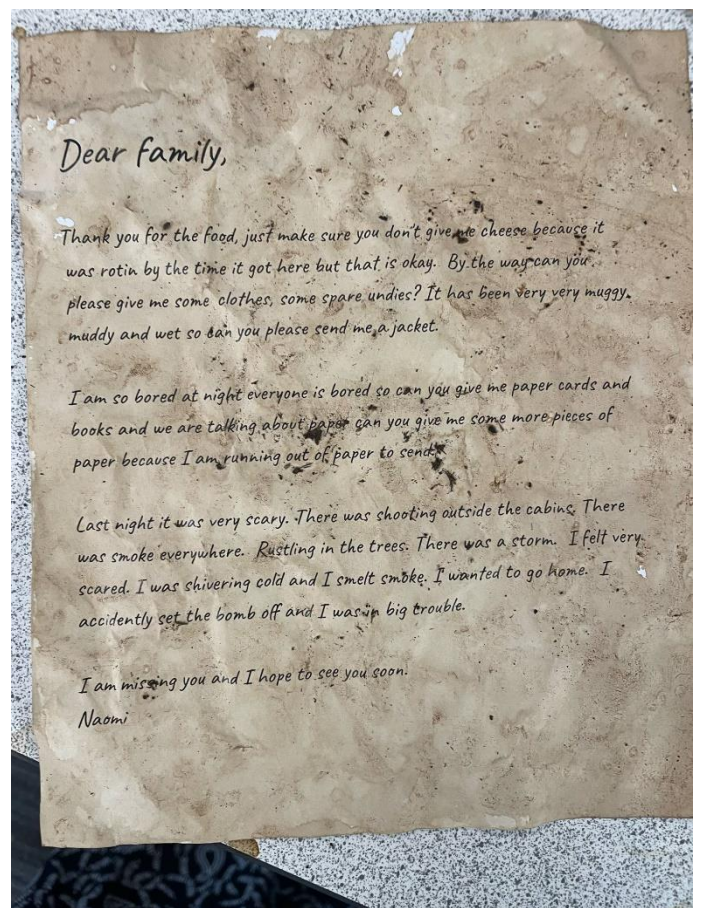 Dear family,
Thank you for the food, just make sure you don't give me cheese because it
was rotin by the time it got here but that is okay. By the way can you
please give me some clothes, some spare undies? It has been very very muggy,
muddy and wet so can you please send me a jacket.
I am so bored at night everyone is bored so can you give me paper cards and
books and we are talking about paper can you give me some more pieces of
paper because I am running out of paper to send.
Last night it was very scary. There was shooting outside the cabins. There
was smoke everywhere. Rustling in the trees. There was a storm. I felt very
scared. I was shivering cold and I smelt smoke. I wanted to go home. I
accidently set the bomb off and I was in big trouble.
I am missing you and I hope to see you soon.
Naomi